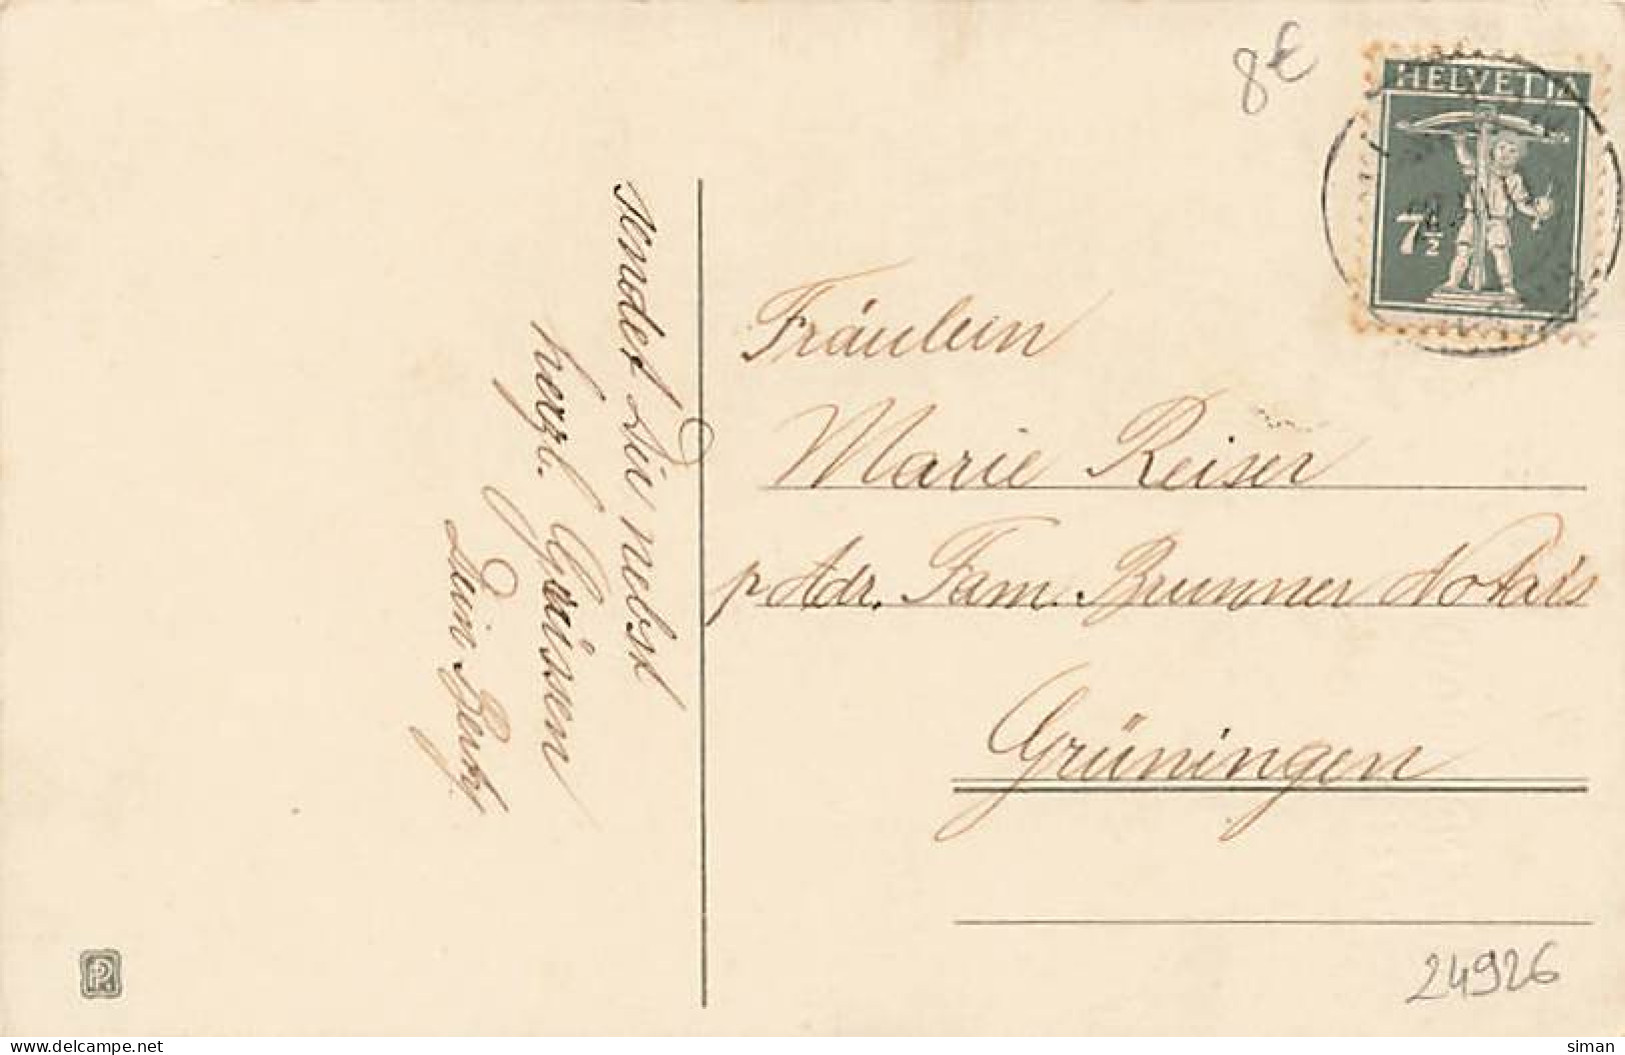 sendet Dir nebst
herzl. Grüssen
Dein
8€
HELVETIA
7½
Fräulein
Marie Reiser
p. Adr. Fam. Brunner Notars
Grüningen
24926
delcampe.net
siman